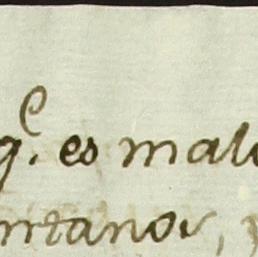 q.e es mal
ntanos,